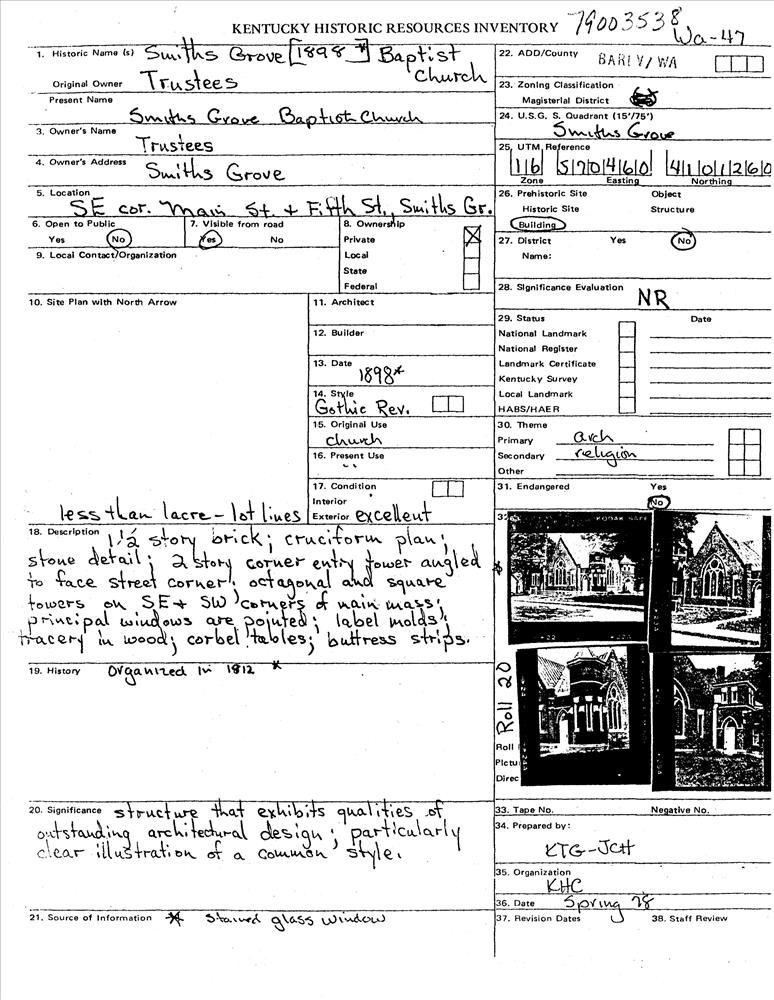 KENTUCKY HISTORIC RESOURCES INVENTORY 79003538
Wa-47
1. Historic Name (s) Smiths Grove [1898 *] Baptist Church
Original Owner Trustees
Present Name
Smiths Grove Baptist Church
3. Owner's Name
Trustees
4. Owner's Address
Smiths Grove
5. Location
SE cor. Main St. + Fifth St., Smiths Gr.
6. Open to Public
Yes No
7. Visible from road
Yes No
8. Ownership
Private
Local
State
Federal
9. Local Contact/Organization
10. Site Plan with North Arrow
less than 1acre - lot lines
11. Architect
12. Builder
13. Date
1898*
14. Style
Gothic Rev.
15. Original Use
church
16. Present Use
" "
17. Condition
Interior
Exterior excellent
18. Description 1 1/2 story brick; cruciform plan;
stone detail; 2 story corner entry tower angled
to face street corner; octagonal and square
towers on SE + SW corners of main mass;
principal windows are pointed; label molds;
tracery in wood; corbel tables; buttress strips.
19. History Organized in 1812 *
20. Significance structure that exhibits qualities of
outstanding architectural design; particularly
clear illustration of a common style.
21. Source of Information * Stained glass window
22. ADD/County BARLV/WA
23. Zoning Classification
Magisterial District
24. U.S.G. S. Quadrant (15'/75')
Smiths Grove
25. UTM Reference
16 570460 4101260
Zone Easting Northing
26. Prehistoric Site Object
Historic Site Structure
Building
27. District Yes No
Name:
28. Significance Evaluation NR
29. Status Date
National Landmark
National Register
Landmark Certificate
Kentucky Survey
Local Landmark
HABS/HAER
30. Theme
Primary arch
Secondary religion
Other
31. Endangered Yes
No
KODAK SAFE
Roll 20
Roll
Pictu
Direc
33. Tape No. Negative No.
34. Prepared by:
KTG-JCH
35. Organization
KHC
36. Date Spring 78
37. Revision Dates 38. Staff Review